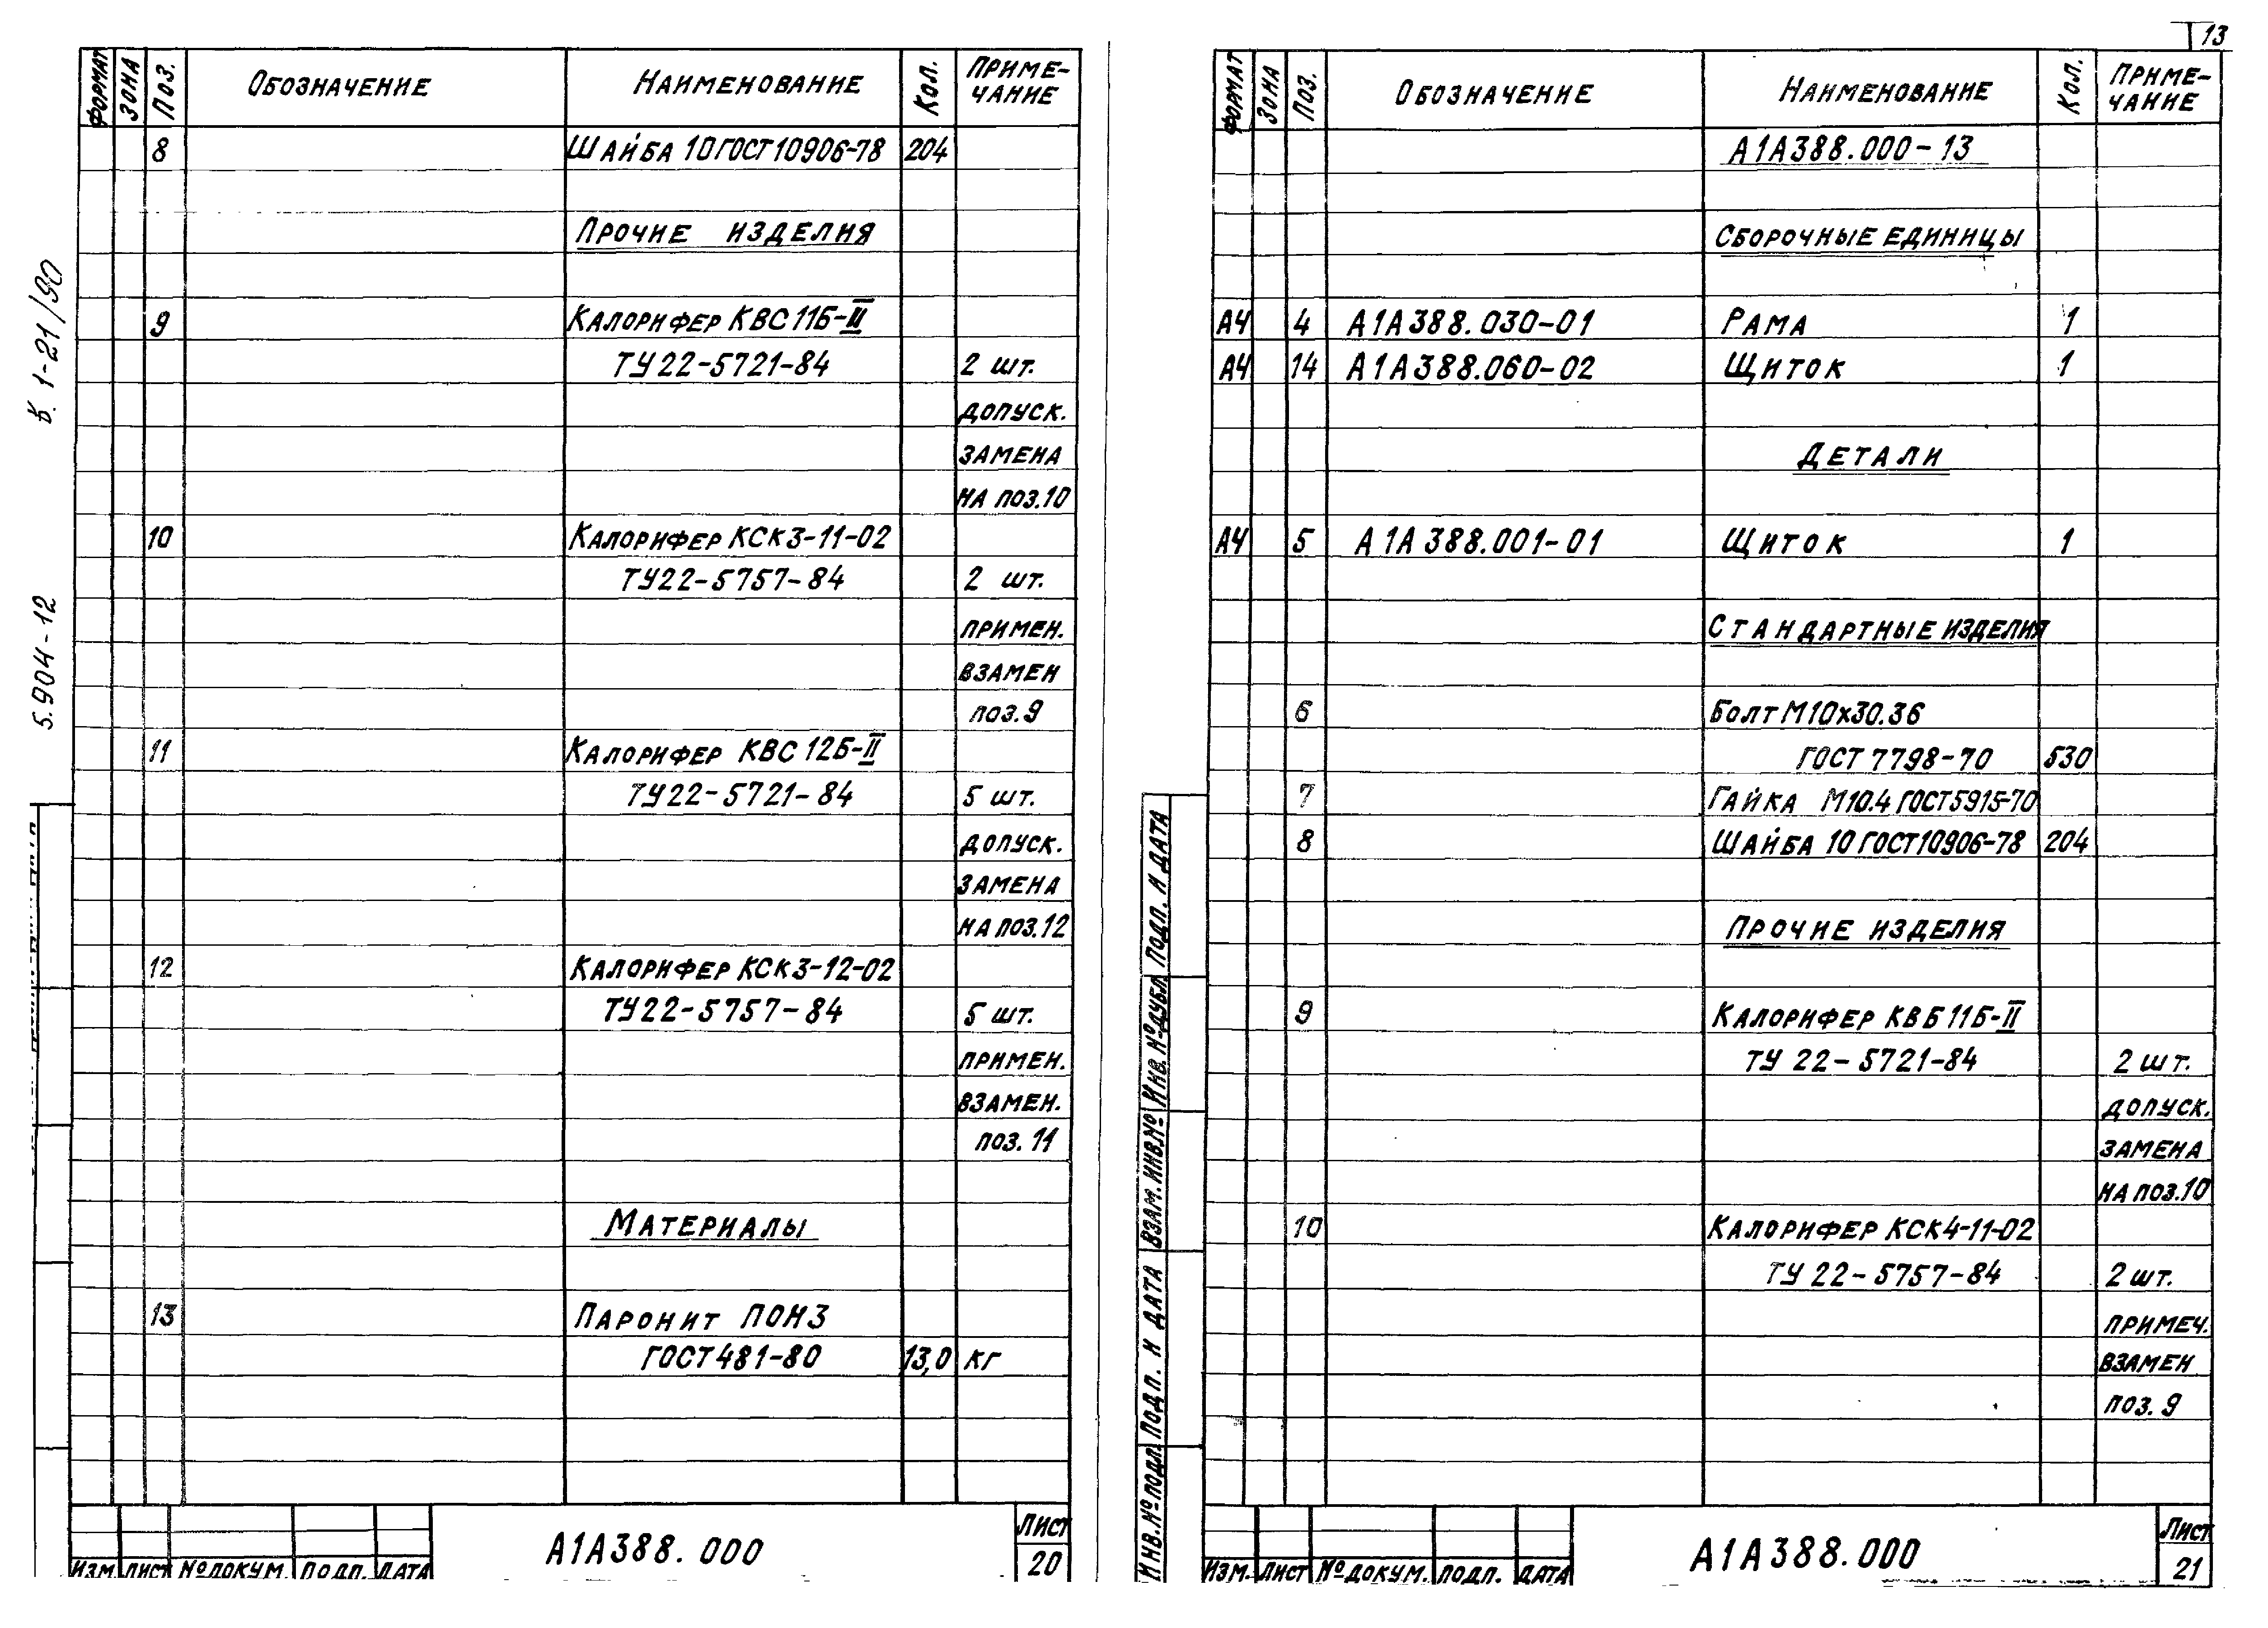 13
5.904-12
В. 1-21/90
ФОРМАТ ЗОНА ПОЗ. ОБОЗНАЧЕНИЕ НАИМЕНОВАНИЕ КОЛ. ПРИМЕ-
ЧАНИЕ
8 ШАЙБА 10 ГОСТ 10906-78 204
ПРОЧИЕ ИЗДЕЛИЯ
9 КАЛОРИФЕР КВС 11Б-II
ТУ 22-5721-84 2 шт.
ДОПУСК.
ЗАМЕНА
НА ПОЗ.10
10 КАЛОРИФЕР КСК 3-11-02
ТУ22-5757-84 2 шт.
ПРИМЕН.
ВЗАМЕН
ПОЗ.9
11 КАЛОРИФЕР КВС 12Б-II
ТУ22-5721-84 5 шт.
ДОПУСК.
ЗАМЕНА
НА ПОЗ.12
12 КАЛОРИФЕР КСК 3-12-02
ТУ22-5757-84 5 шт.
ПРИМЕН.
ВЗАМЕН.
ПОЗ. 11
МАТЕРИАЛЫ
13 ПАРОНИТ ПОН 3
ГОСТ 481-80 13,0 КГ
ИЗМ. ЛИСТ № ДОКУМ. ПОДП. ДАТА
А1А388.000
ЛИСТ
20
ФОРМАТ ЗОНА ПОЗ. ОБОЗНАЧЕНИЕ НАИМЕНОВАНИЕ КОЛ. ПРИМЕ-
ЧАНИЕ
А1А388.000-13
СБОРОЧНЫЕ ЕДИНИЦЫ
А4 4 А1А388.030-01 РАМА 1
А4 14 А1А388.060-02 ЩИТОК 1
ДЕТАЛИ
А4 5 А1А388.001-01 ЩИТОК 1
СТАНДАРТНЫЕ ИЗДЕЛИЯ
6 БОЛТ М10х30.36
ГОСТ 7798-70 530
7 ГАЙКА М10.4 ГОСТ5915-70
8 ШАЙБА 10 ГОСТ10906-78 204
ПРОЧИЕ ИЗДЕЛИЯ
9 КАЛОРИФЕР КВБ 11Б-II
ТУ 22-5721-84 2 шт.
ДОПУСК.
ЗАМЕНА
НА ПОЗ.10
10 КАЛОРИФЕР КСК4-11-02
ТУ 22-5757-84 2 шт.
ПРИМЕЧ.
ВЗАМЕН
ПОЗ. 9
ИНВ. № ПОДЛ. ПОДП. И ДАТА ВЗАМ. ИНВ. № ИНВ. № ДУБЛ. ПОДП. И ДАТА
ИЗМ. ЛИСТ № ДОКУМ. ПОДП. ДАТА
А1А388.000
ЛИСТ
21